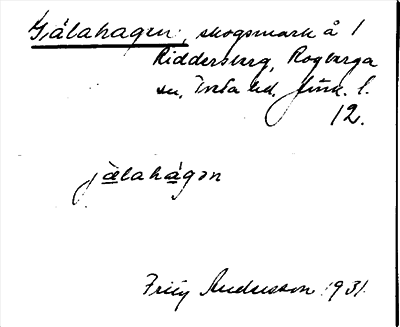 Gälahagen, skogsmark å 1
Riddersberg, Rogberga
sn, Tveta hd, Jönk. l.
12.
jälahágən
Fritz Andersson 1931